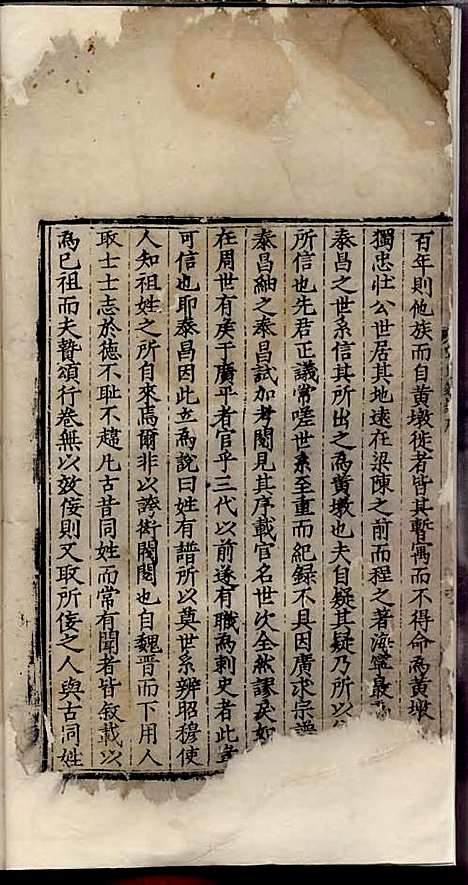 百年則他族而自黃墩徙者皆其暫寓而不得命為黃墩
獨忠壯公世居其地遠在梁陳之前而程之著海寧最
泰昌之世系信其所出之為黃墩也夫自疑其疑乃所以
所信也先君正議常嗟世系至重而紀録不具因廣求宗譜
泰昌紬之泰昌試加考閱見其序載官名世次全然謬戾如
在周世有矦于廣平者官乎三代以前遂有職為刺史者此豈
可信也耶泰昌因此立為說曰姓有譜所以奠世系辨昭穆使
人知祖姓之所自來焉爾非以誇衒閥閱也自魏晋而下用人
取士士志於徳不耻不趨凡古昔同姓而常有聞者皆敘載以
為已祖而夫贊頌行卷無以效佞則又取所佞之人與古同姓